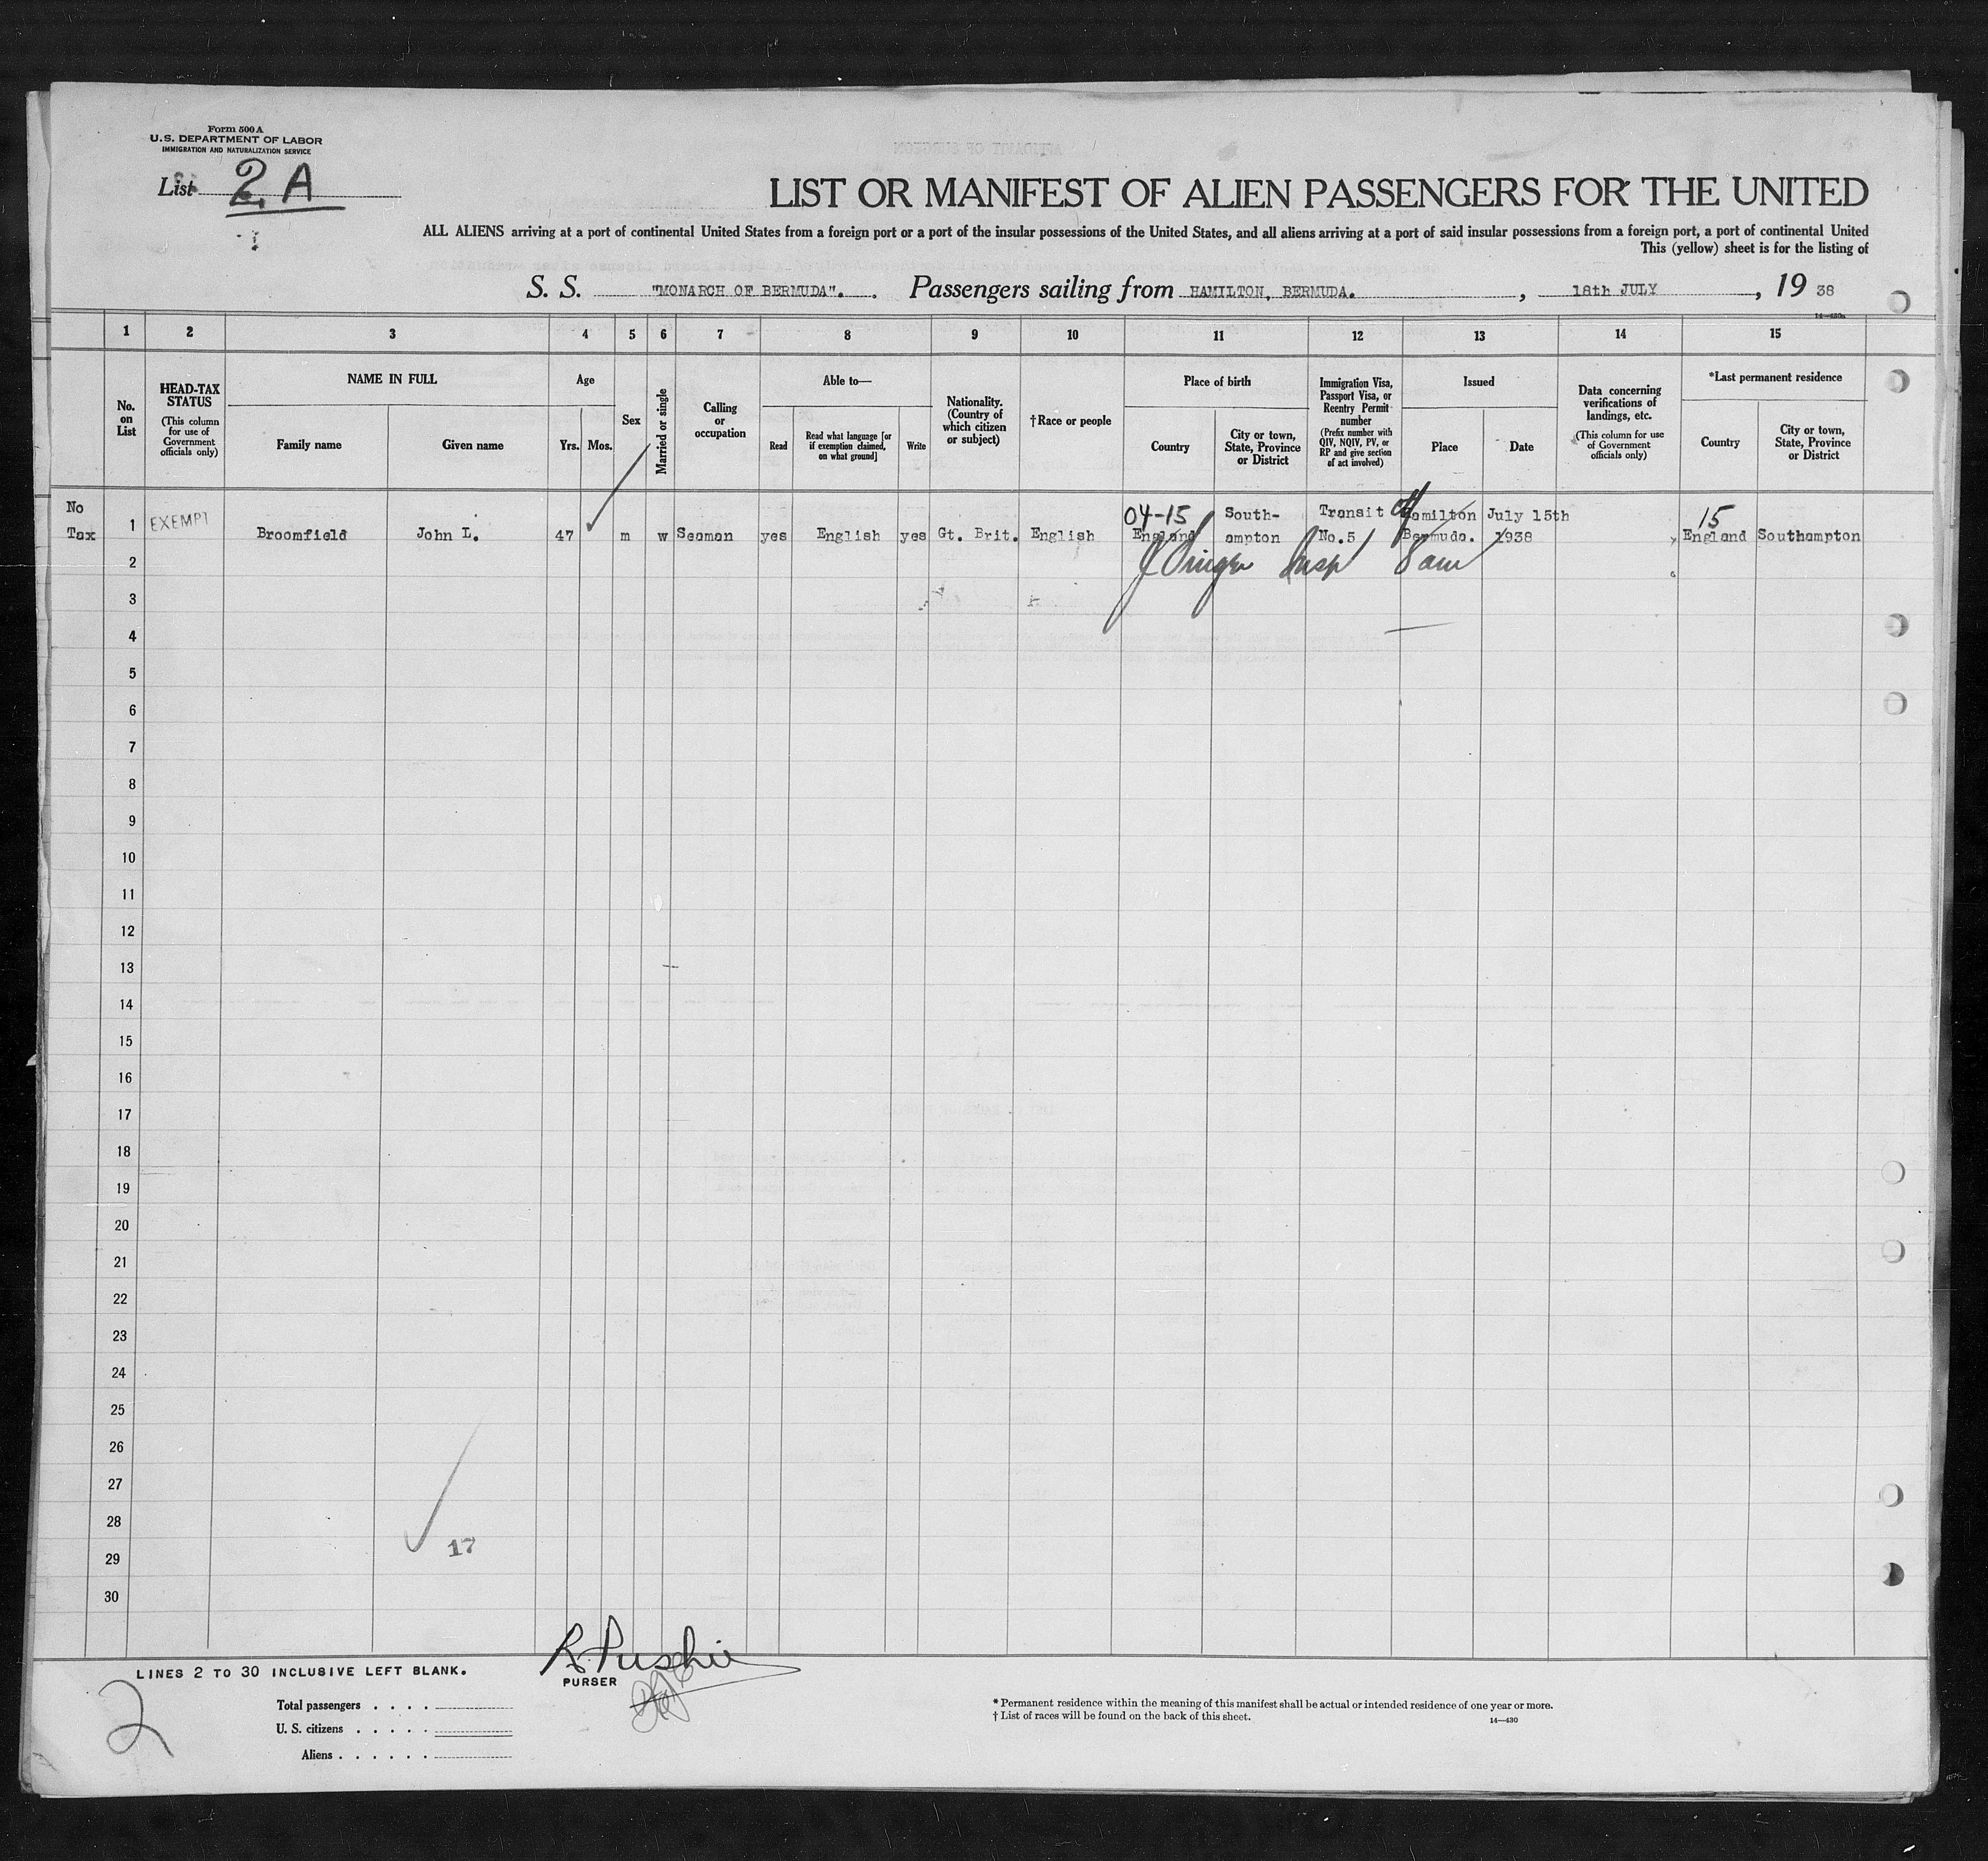 Form 500 A
U.S. DEPARTMENT OF LABOR
IMMIGRATION AND NATURALIZATION SERVICE
List 2 A
LIST OR MANIFEST OF ALIEN PASSENGERS FOR THE UNITED
ALL ALIENS arriving at a port of continental United States from a foreign port or a port of the insular possessions of the United States, and all aliens arriving at a port of said insular possessions from a foreign port, a port of continental United
This (yellow) sheet is for the listing of
S. S. "MONARCH OF BERMUDA". Passengers sailing from HAMILTON, BERMUDA. , 18th JULY , 19 38
1 2 3 4 5 6 7 8 9 10 11 12 13 14 15
No. on List
HEAD-TAX STATUS
(This column for use of Government officials only)
NAME IN FULL
Family name
Given name
Age
Yrs. Mos.
Sex
Married or single
Calling or occupation
Able to—
Read
Read what language [or if exemption claimed, on what ground]
Write
Nationality. (Country of which citizen or subject)
†Race or people
Place of birth
Country
City or town, State, Province or District
Immigration Visa, Passport Visa, or Reentry Permit number
(Prefix number with QIV, NQIV, PV, or RP and give section of act involved)
Issued
Place
Date
Data concerning verifications of landings, etc.
(This column for use of Government officials only)
*Last permanent residence
Country
City or town, State, Province or District
No 1 EXEMPT 04-15 South- Transit Hamilton July 15th 15
Tax Broomfield John L. 47 m w Seaman yes English yes Gt. Brit. English England ampton No.5 Bermuda. 1938 England Southampton
2 Insp 8 am
3
4
5
6
7
8
9
10
11
12
13
14
15
16
17
18
19
20
21
22
23
24
25
26
27
28
29 17
30
LINES 2 TO 30 INCLUSIVE LEFT BLANK.
PURSER
2
Total passengers
U. S. citizens
Aliens
* Permanent residence within the meaning of this manifest shall be actual or intended residence of one year or more.
† List of races will be found on the back of this sheet.
14—430